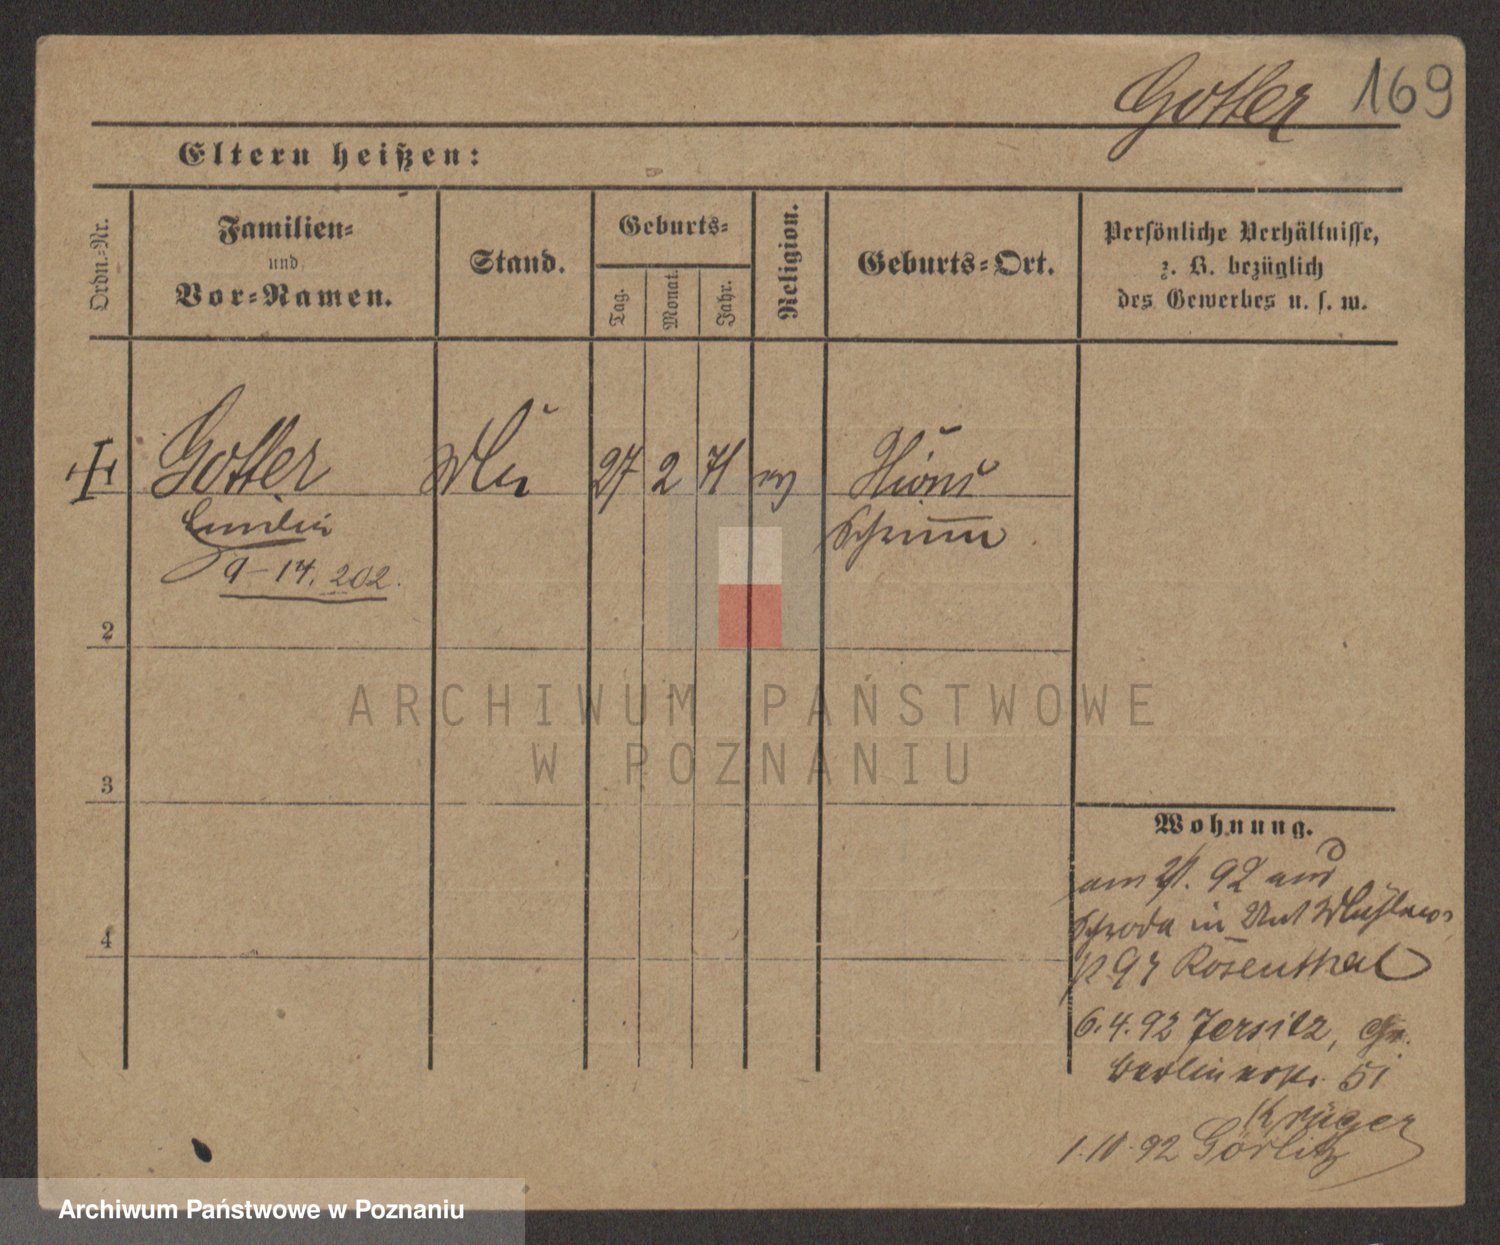 Gotter 169
Eltern heißen:
Ordn.-Nr.
Familien-
und
Vor-Namen.
Stand.
Geburts-
Tag.
Monat.
Jahr.
Religion.
Geburts-Ort.
Persönliche Verhältnisse,
z. B. bezüglich
des Gewerbes u. s. w.
Gotter 27 2 71
Schrimm
9-14. 202.
2
3
4
ARCHIWUM PAŃSTWOWE
W POZNANIU
Wohnung.
am 2/1. 92 aus
Schroda in
Rosenthal
6.4.92 Jersitz, Gr.
Berlinerstr. 51
Krüger
1.10.92 Görlitz
Archiwum Państwowe w Poznaniu